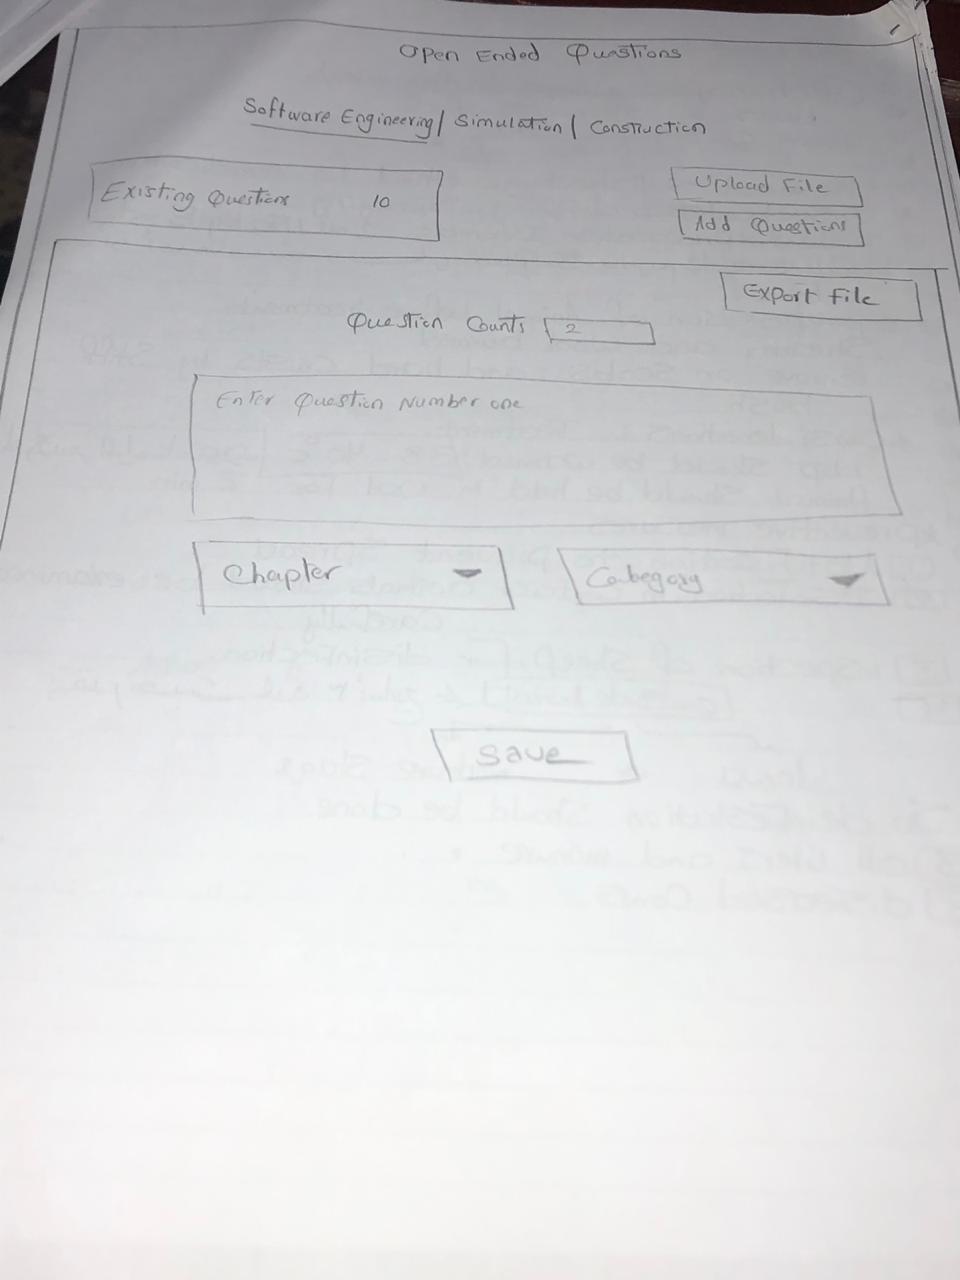 Open Ended Questions
Software Engineering / Simulation / Construction
Existing Questions 10
Upload File
Add Questions
Export file
Question Counts 2
Enter Question Number one
Chapter
Category
Save